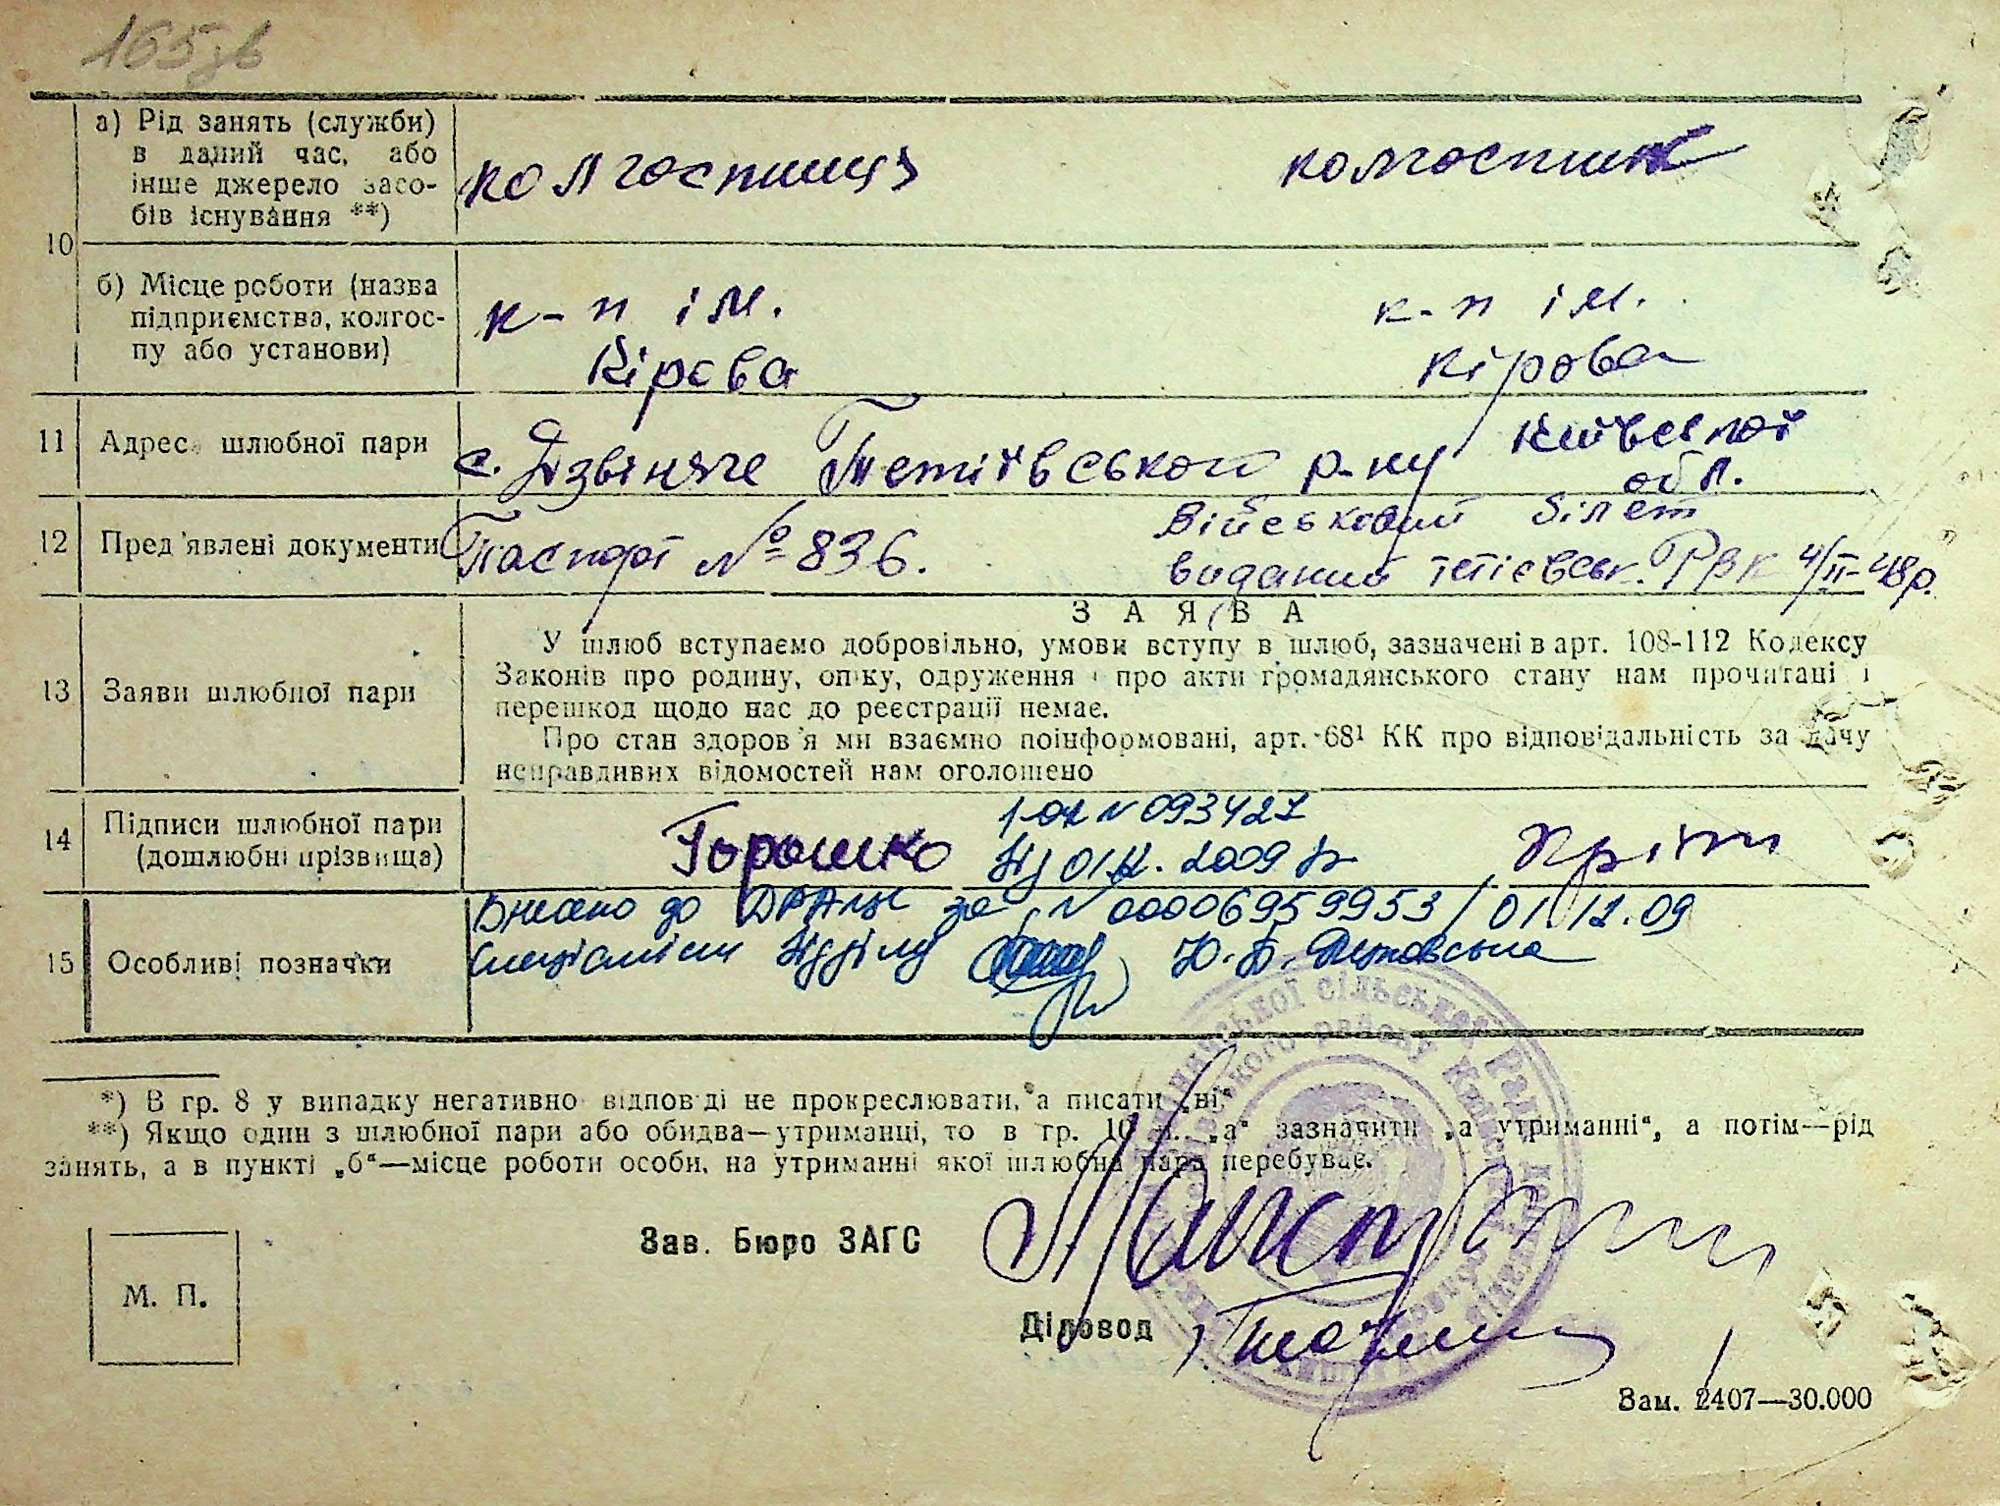 165зв
10
а) Рід занять (служби)
в даний час, або
інше джерело засо-
бів існування **)
колгоспниця колгоспник
б) Місце роботи (назва
підприємства, колгос-
пу або установи)
к-п ім. к-п ім.
Кірова Кірова
11 Адреса шлюбної пари
с. Дзвеняче Тетіївського р-ну Київської
обл.
12 Пред'явлені документи
Паспорт № 836. Військовий білет
виданий тетієвськ. РВК 4/II-48р.
ЗАЯВА
13 Заяви шлюбної пари
У шлюб вступаємо добровільно, умови вступу в шлюб, зазначені в арт. 108-112 Кодексу
Законів про родину, опіку, одруження і про акти громадянського стану нам прочитані і
перешкод щодо нас до реєстрації немає.
Про стан здоров'я ми взаємно поінформовані, арт. 68¹ КК про відповідальність за дачу
неправдивих відомостей нам оголошено
14 Підписи шлюбної пари
(дошлюбні прізвища)
N 093427
Горошко 2009 р.
15 Особливі позначки
Внесено до ДРАЦС за N 00006959953 / 01.12.09
спеціаліст відділу
*) В гр. 8 у випадку негативної відповіді не прокреслювати, а писати „ні“
**) Якщо один з шлюбної пари або обидва—утриманці, то в гр. 10 п. „а“ зазначити „а утриманні“, а потім—рід
занять, а в пункті „б“—місце роботи особи, на утриманні якої шлюбна пара перебуває.
Зав. Бюро ЗАГС
М. П.
Діловод
Зам. 2407—30.000